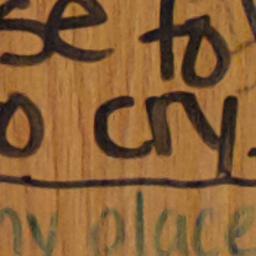 se to
o cry.
ny place